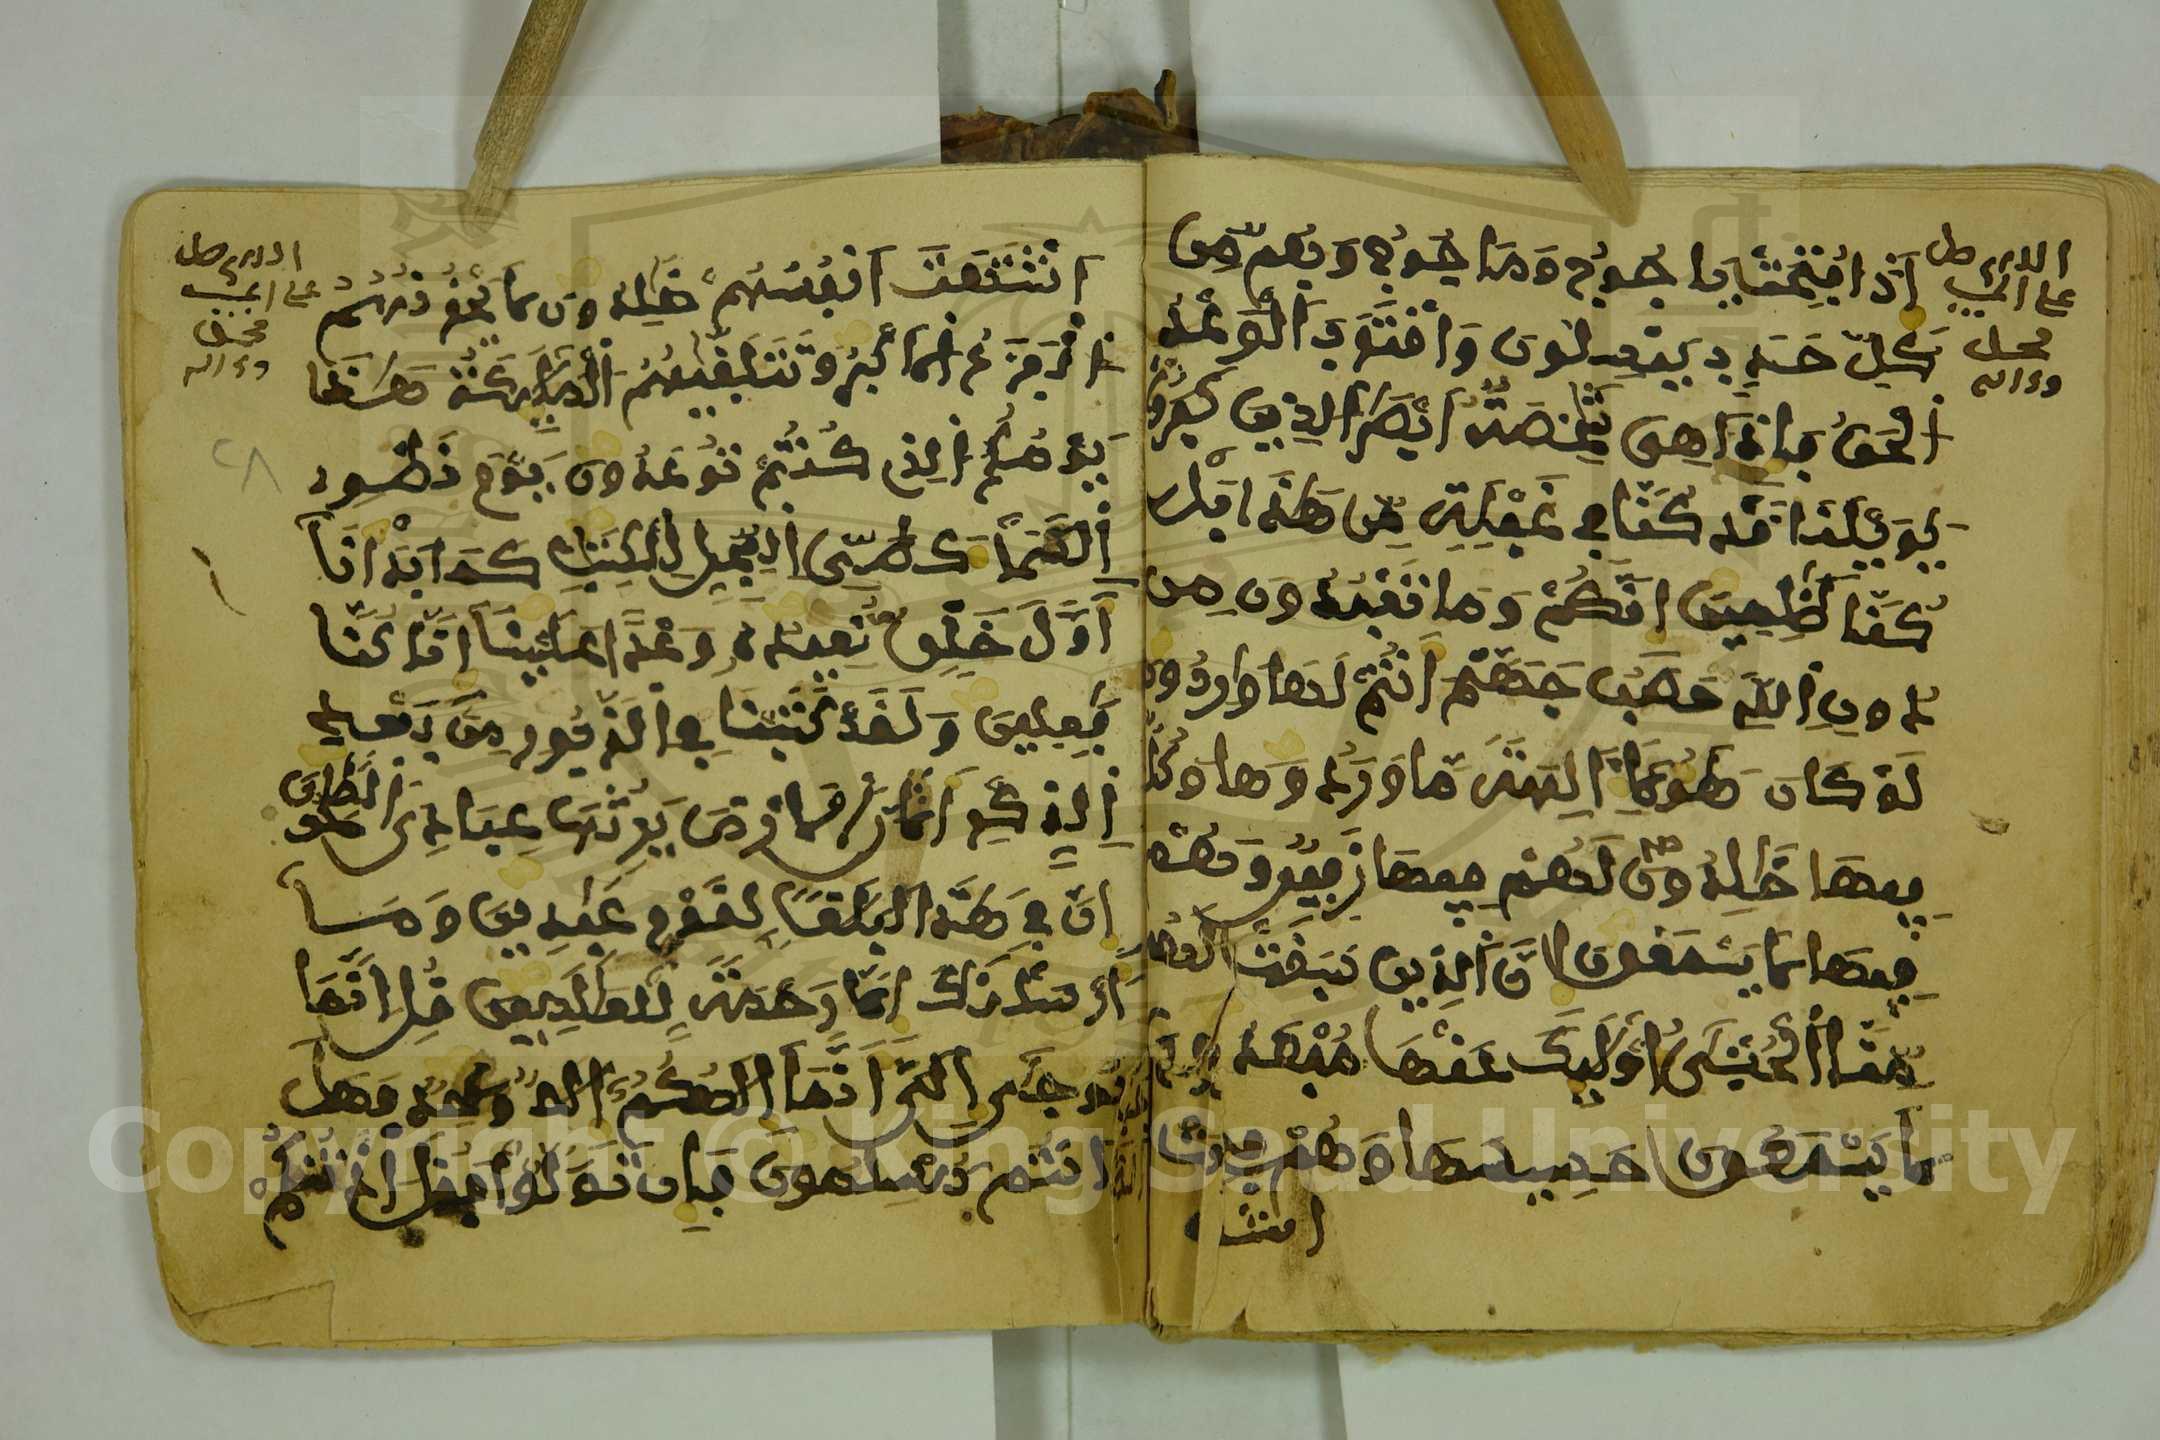 اذا فتحت ياجوج وماجوج وهم من
كل حدب ينسلون واقترب الوعد
الحق فاذا هى شخصة ابصر الذين كفروا
يويلنا قد كنا في غفلة من هذا بل
كنا ظلمين انكم وما تعبدون من
دون الله حصب جهنم انتم لها واردون
لو كان هؤلا الهة ما وردوها وكل
فيها خلدون لهم فيها زفير وهم
فيها لا يسمعون ان الذين سبقت لهم
منا الحسنى اوليك عنها مبعدون
لا يسمعون حسيسها وهم في ما
اشتهت
اللهم صل
على الحبيب
محمد
وءاله
اشتهت انفسهم خلدون لا يحزنهم
الفزع الاكبر وتتلقيهم المليكة هذا
يومكم الذي كنتم توعدون يوم نطوي
السما كطي السجل للكتب كما بدانا
اول خلق نعيده وعدا علينا انا كنا
فعلين ولقد كتبنا في الزبور من بعد
الذكر ان الارض يرثها عبادي الصلحون
ان في هذا لبلغا لقوم عبدين وما
ارسلنك الا رحمة للعلمين قل انما
يوحى الي انما الهكم اله وحد فهل
انتم مسلمون فان تولوا فقل اذنتكم
اللهم صل
على الحبيب
محمد
وءاله
٢٨
Copyright © King Saud University